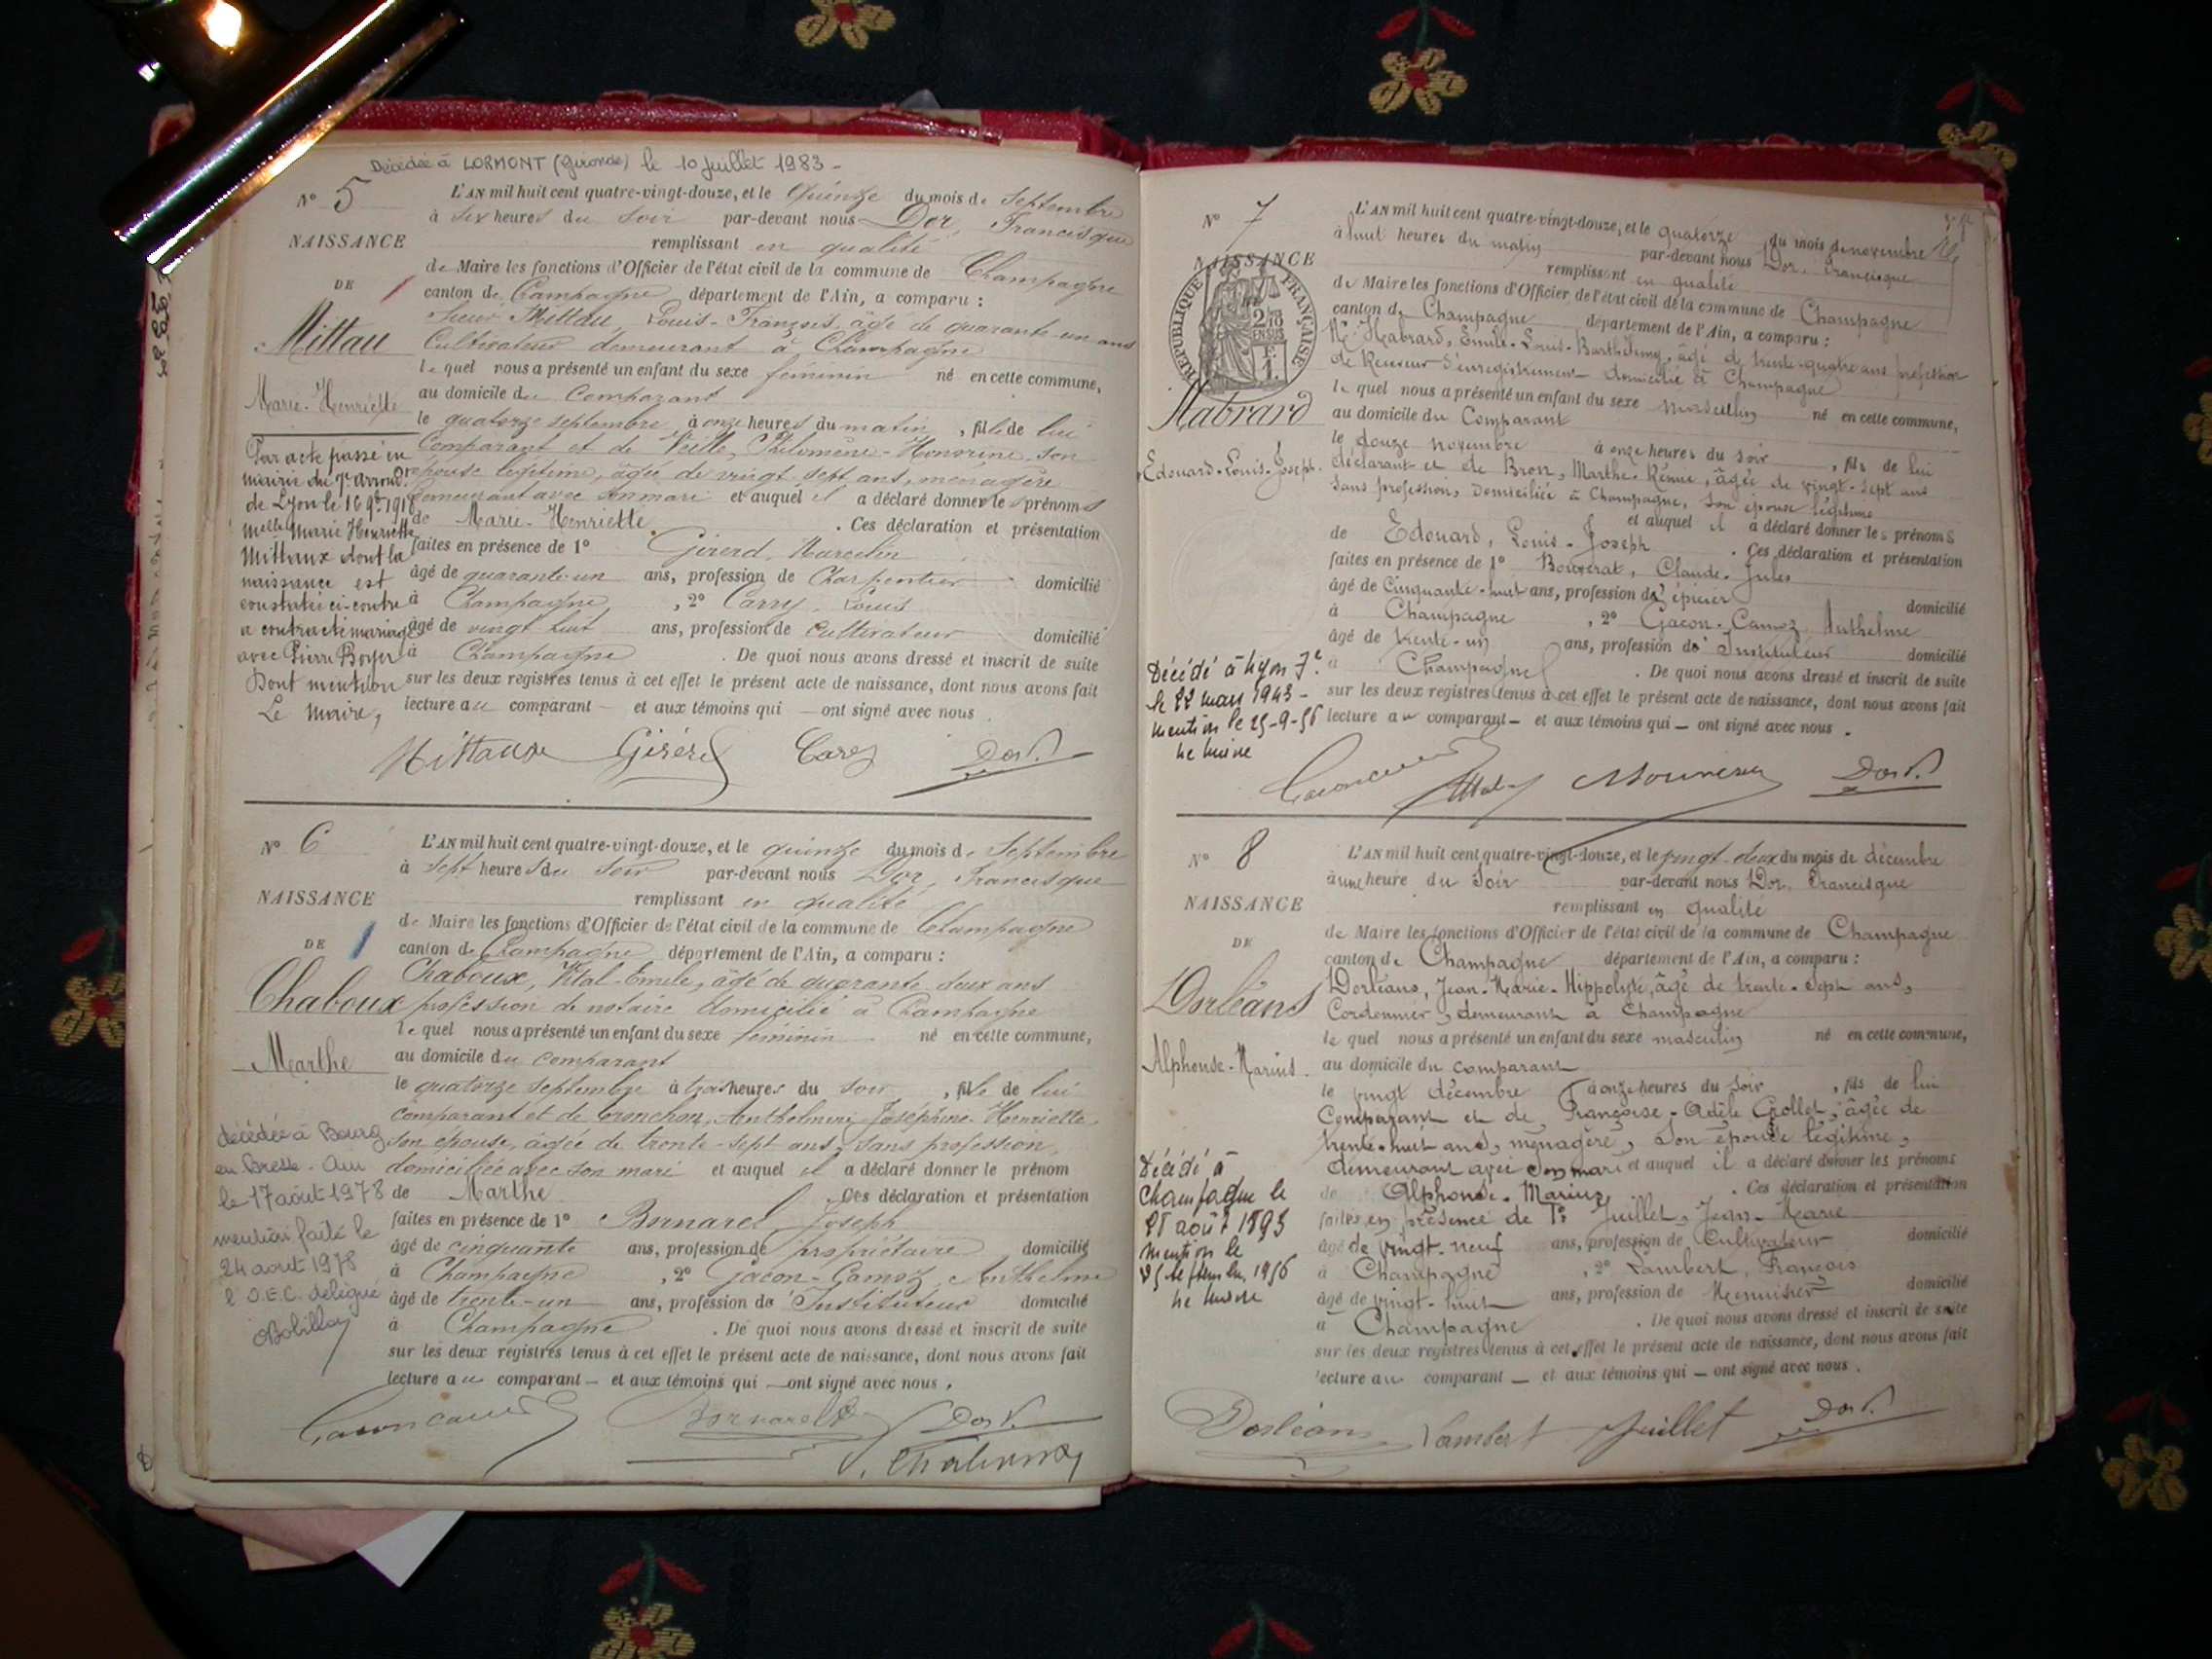 Décédée à LORMONT (Gironde) le 10 juillet 1983 -
N° 5
NAISSANCE
DE
Mittau
Marie-Henriette
Par acte passé en
mairie du 7e arrondt
de Lyon le 16 9bre 1918
Melle Marie Henriette
Mittaux dont la
naissance est
constatée ci-contre
a contracté mariage
avec Pierre Boyer
Dont mention
Le Maire,
L'AN mil huit cent quatre-vingt-douze, et le quinze du mois de Septembre
à six heures du soir par-devant nous Dor, Francisque
remplissant en qualité
de Maire les fonctions d'Officier de l'état civil de la commune de Champagne
canton de Champagne département de l'Ain, a comparu :
sieur Mittau, Louis-François, âgé de quarante-un ans
Cultivateur demeurant à Champagne
lequel nous a présenté un enfant du sexe féminin né en cette commune,
au domicile du Comparant
le quatorze septembre à onze heures du matin, fille de lui
Comparant et de Veille, Philomène-Honorine, son
épouse légitime, âgée de vingt sept ans, ménagère
demeurant avec son mari et auquel il a déclaré donner les prénoms
de Marie-Henriette. Ces déclaration et présentation
faites en présence de 1° Gérerd, Marcelin
âgé de quarante-un ans, profession de Charpentier domicilié
à Champagne, 2° Carry, Louis
âgé de vingt huit ans, profession de cultivateur domicilié
à Champagne. De quoi nous avons dressé et inscrit de suite
sur les deux registres tenus à cet effet le présent acte de naissance, dont nous avons fait
lecture au comparant — et aux témoins qui — ont signé avec nous.
Mittaux Dor F.
N° 6
NAISSANCE
DE
Chaboux
Marthe
décédée à Bourg
en Bresse - Ain
le 17 août 1978
mention faite le
24 août 1978
l'O.E.C. délégué
L'AN mil huit cent quatre-vingt-douze, et le quinze du mois de Septembre
à sept heures du soir par-devant nous Dor, Francisque
remplissant en qualité
de Maire les fonctions d'Officier de l'état civil de la commune de Champagne
canton de Champagne département de l'Ain, a comparu :
Chaboux, Vital-Emile, âgé de quarante-deux ans
profession de notaire domicilié à Champagne
lequel nous a présenté un enfant du sexe féminin né en cette commune,
au domicile du comparant
le quatorze septembre à trois heures du soir, fille de lui
comparant et de Anthelmine Joséphine-Henriette
son épouse, âgée de trente-sept ans, sans profession,
domiciliée avec son mari et auquel il a déclaré donner le prénom
de Marthe. Ces déclaration et présentation
faites en présence de 1° Bornarel, Joseph
âgé de cinquante ans, profession de propriétaire domicilié
à Champagne, 2° Gacon-Camoz, Anthelme
âgé de trente-un ans, profession de Instituteur domicilié
à Champagne. De quoi nous avons dressé et inscrit de suite
sur les deux registres tenus à cet effet le présent acte de naissance, dont nous avons fait
lecture au comparant — et aux témoins qui — ont signé avec nous.
Bornarel Dor F.
V. Chaboux
N° 7
NAISSANCE
RÉPUBLIQUE FRANÇAISE
2/10 EN SUS
Habrard
Edouard-Louis-Joseph.
Décédé à Lyon 7e
le 22 mars 1943 -
mention le 25-9-56
Le Maire
L'AN mil huit cent quatre-vingt-douze, et le quatorze du mois de novembre
à huit heures du matin par-devant nous Dor, Francisque
remplissant en qualité
de Maire les fonctions d'Officier de l'état civil de la commune de Champagne
canton de Champagne département de l'Ain, a comparu :
Mr Habrard, Emile-Louis-Barthélemy, âgé de trente-quatre ans profession
de Receveur d'enregistrement domicilié à Champagne
lequel nous a présenté un enfant du sexe masculin né en cette commune,
au domicile du Comparant
le douze novembre à onze heures du soir, fils de lui
déclarant et de Bron, Marthe-Rénne, âgée de vingt-sept ans
sans profession, domiciliée à Champagne, son épouse légitime
et auquel il a déclaré donner les prénoms
de Edouard, Louis-Joseph. Ces déclaration et présentation
faites en présence de 1° Bouverat, Claude-Jules
âgé de cinquante-huit ans, profession d'épicier domicilié
à Champagne, 2° Gacon-Camoz Anthelme
âgé de trente-un ans, profession de Instituteur domicilié
à Champagne. De quoi nous avons dressé et inscrit de suite
sur les deux registres tenus à cet effet le présent acte de naissance, dont nous avons fait
lecture au comparant — et aux témoins qui — ont signé avec nous.
Dor F.
N° 8
NAISSANCE
DE
Dorléans
Alphonse-Marius.
Décédé à
Champagne le
mention le
25 septembre 1956
Le Maire
L'AN mil huit cent quatre-vingt-douze, et le vingt-deux du mois de décembre
à une heure du soir par-devant nous Dor, Francisque
remplissant en qualité
de Maire les fonctions d'Officier de l'état civil de la commune de Champagne
canton de Champagne département de l'Ain, a comparu :
Dorléans, Jean-Marie-Hippolyte, âgé de trente-sept ans,
Cordonnier, demeurant à Champagne
lequel nous a présenté un enfant du sexe masculin né en cette commune,
au domicile du comparant
le vingt décembre à onze heures du soir, fils de lui
Comparant et de Françoise-Adèle Gollet, âgée de
trente-huit ans, ménagère, son épouse légitime,
demeurant avec son mari et auquel il a déclaré donner les prénoms
de Alphonse-Marius. Ces déclaration et présentation
faites en présence de 1° Juillet, Jean-Marie
âgé de vingt-neuf ans, profession de Cultivateur domicilié
à Champagne, 2° Lambert, François
âgé de vingt-huit ans, profession de Menuisier domicilié
à Champagne. De quoi nous avons dressé et inscrit de suite
sur les deux registres tenus à cet effet le présent acte de naissance, dont nous avons fait
lecture au comparant — et aux témoins qui — ont signé avec nous.
Dorléans Lambert Juillet Dor F.